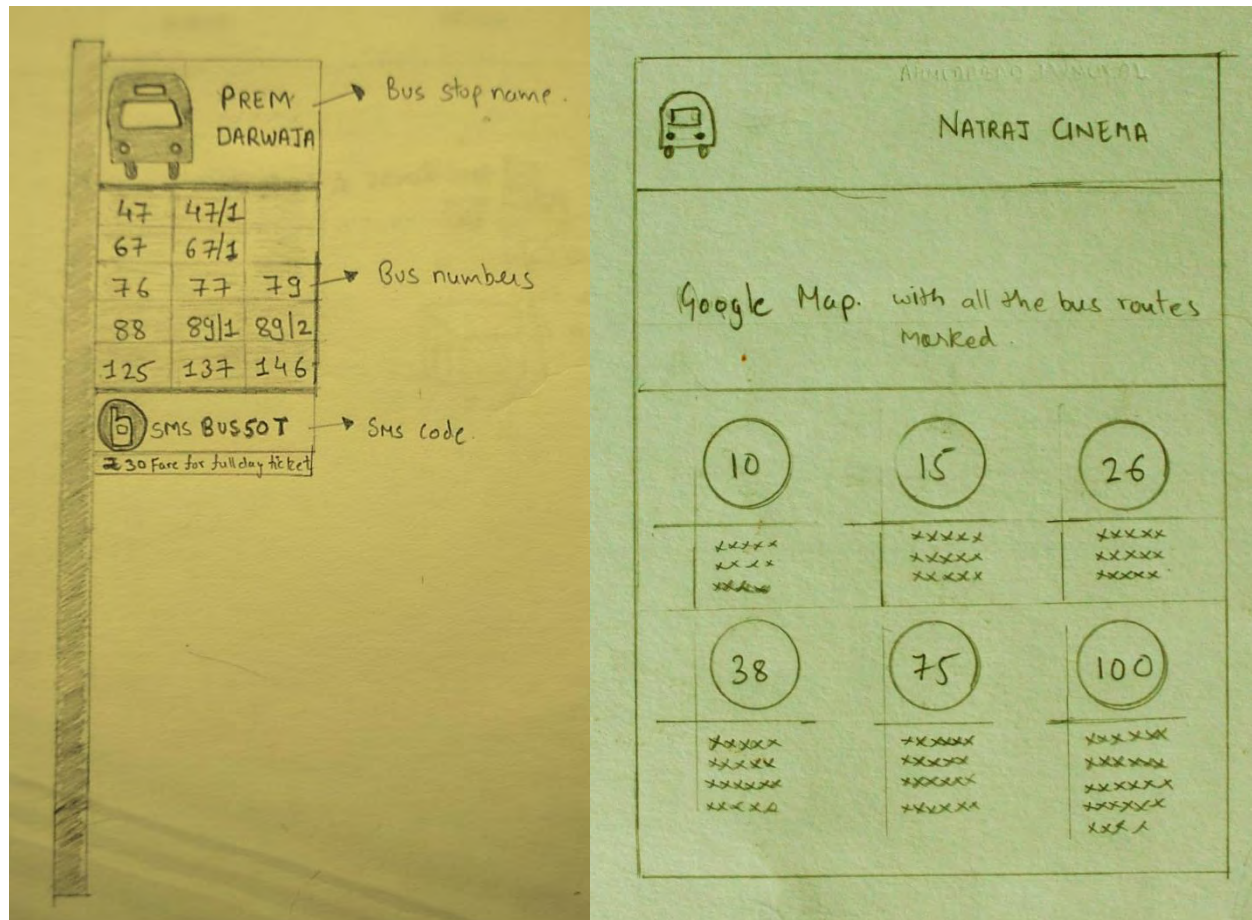 PREM
DARWAJA
Bus stop name.
47 47/1
67 67/1
76 77 79
Bus numbers
88 89/1 89/2
125 137 146
SMS BUS50T
SMS code.
30 Fare for full day ticket
NATRAJ CINEMA
Google Map. with all the bus routes
marked.
10 15 26
xxxxx xxxxx xxxxx
xxxx xxxxx xxxxx
xxxxx xxxxx xxxxx
38 75 100
xxxxx xxxxxx xxxxxx
xxxxx xxxxx xxxxxx
xxxxxx xxxxxx xxxxxx
xxxxx xxxxxx xxxxxx
xxxx